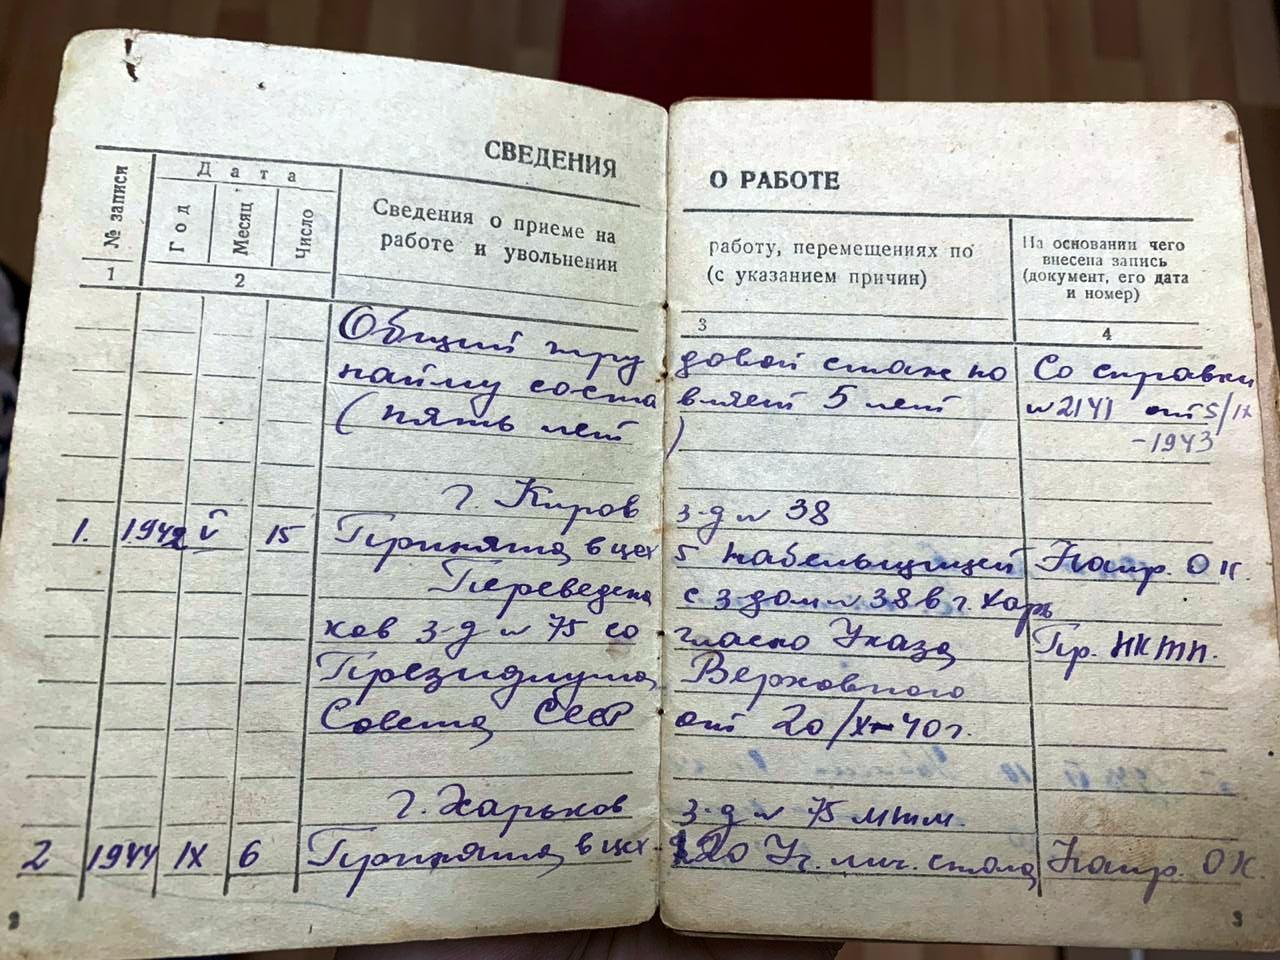 СВЕДЕНИЯ О РАБОТЕ
№ записи
Дата
Год
Месяц
Число
Сведения о приеме на работу, перемещениях по
работе и увольнении (с указанием причин)
На основании чего
внесена запись
(документ, его дата
и номер)
1 2 3 4
Общий трудовой стаж по Со справки
найму составляет 5 лет №2141 от 5/IX
(пять лет) -1943
г. Киров з-д № 38
1. 1942 V 15 Принята в цех 5 табельщицей Напр. ОК.
Переведена с з-дом № 38 в г. Харь
ков з-д № 75 согласно Указа Пр. НКТП.
Президиума Верховного
Совета СССР от 20/X-40г.
г. Харьков з-д № 75 МТМ.
2 1944 IX 6 Принята в цех 120 Уч. лич. стола Напр. ОК.
3